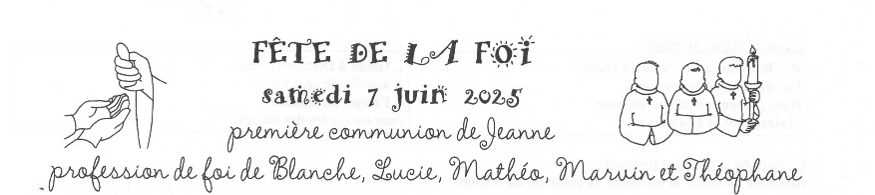 FÊTE DE LA FOI
samedi 7 juin 2025
première communion de Jeanne
profession de foi de Blanche, Lucie, Mathéo, Marvin et Théophane